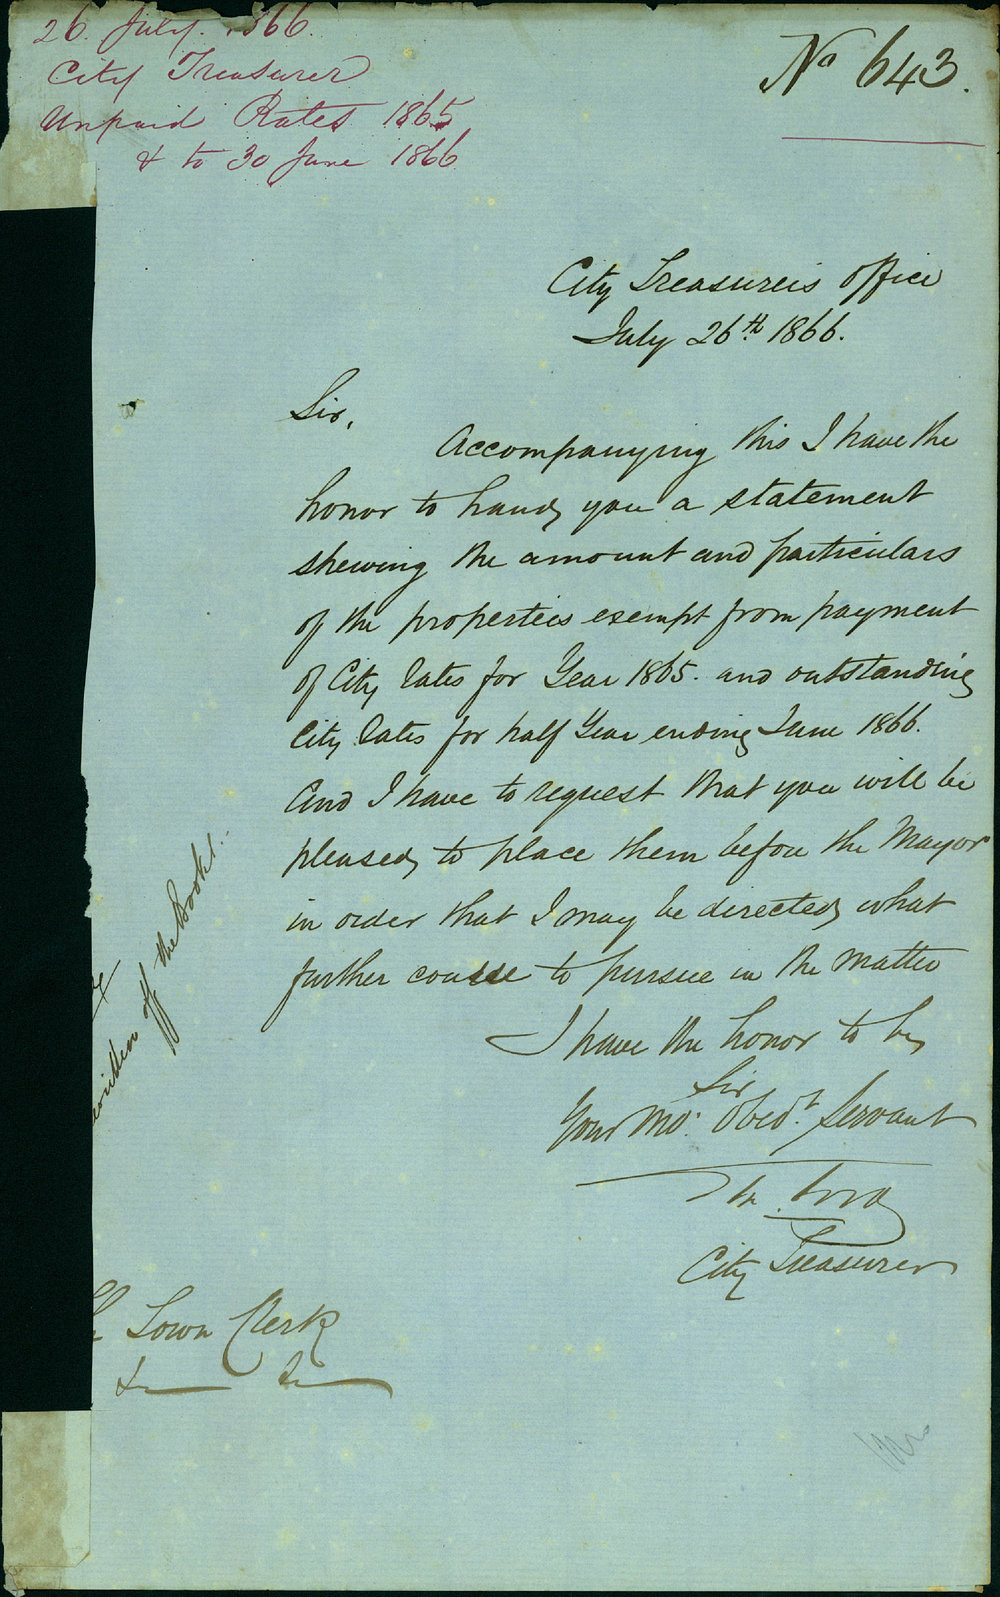 26. July. 1866.
City Treasurer
Unpaid Rates 1865
& to 30 June 1866
No 643.
City Treasurer's Office
July 26th 1866.
Sir,
Accompanying this I have the
honor to hand you a statement
shewing the amount and particulars
of the properties exempt from payment
of City Rates for Year 1865. and outstanding
City Rates for half Year ending June 1866.
And I have to request that you will be
pleased to place them before the Mayor
in order that I may be directed what
further course to pursue in the matter
I have the honor to be
Sir
Your Mo. Obedt. Servant
City Treasurer
written off the books.
Town Clerk